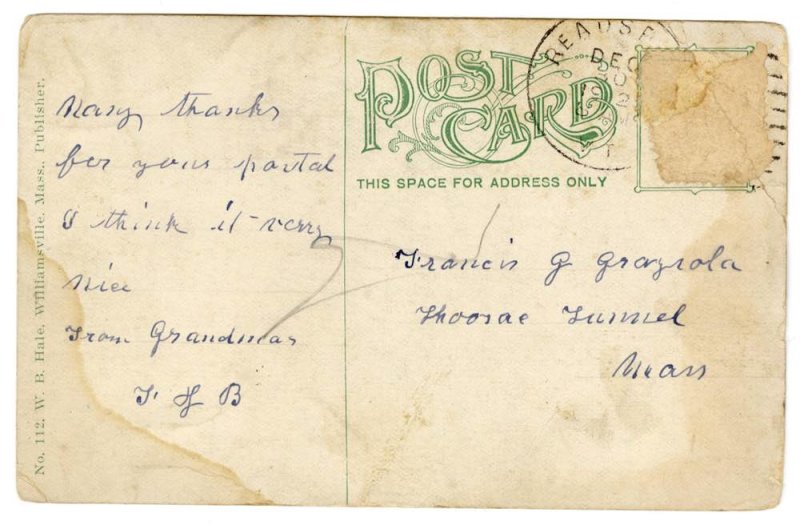 Many thanks
for your postal
I think it very
nice
From Grandmas
F H B
POST CARD
THIS SPACE FOR ADDRESS ONLY
READSB
DEC
Francis G
Hoosac Tunnel
Mass
No. 112. W. B. Hale, Williamsville, Mass., Publisher.